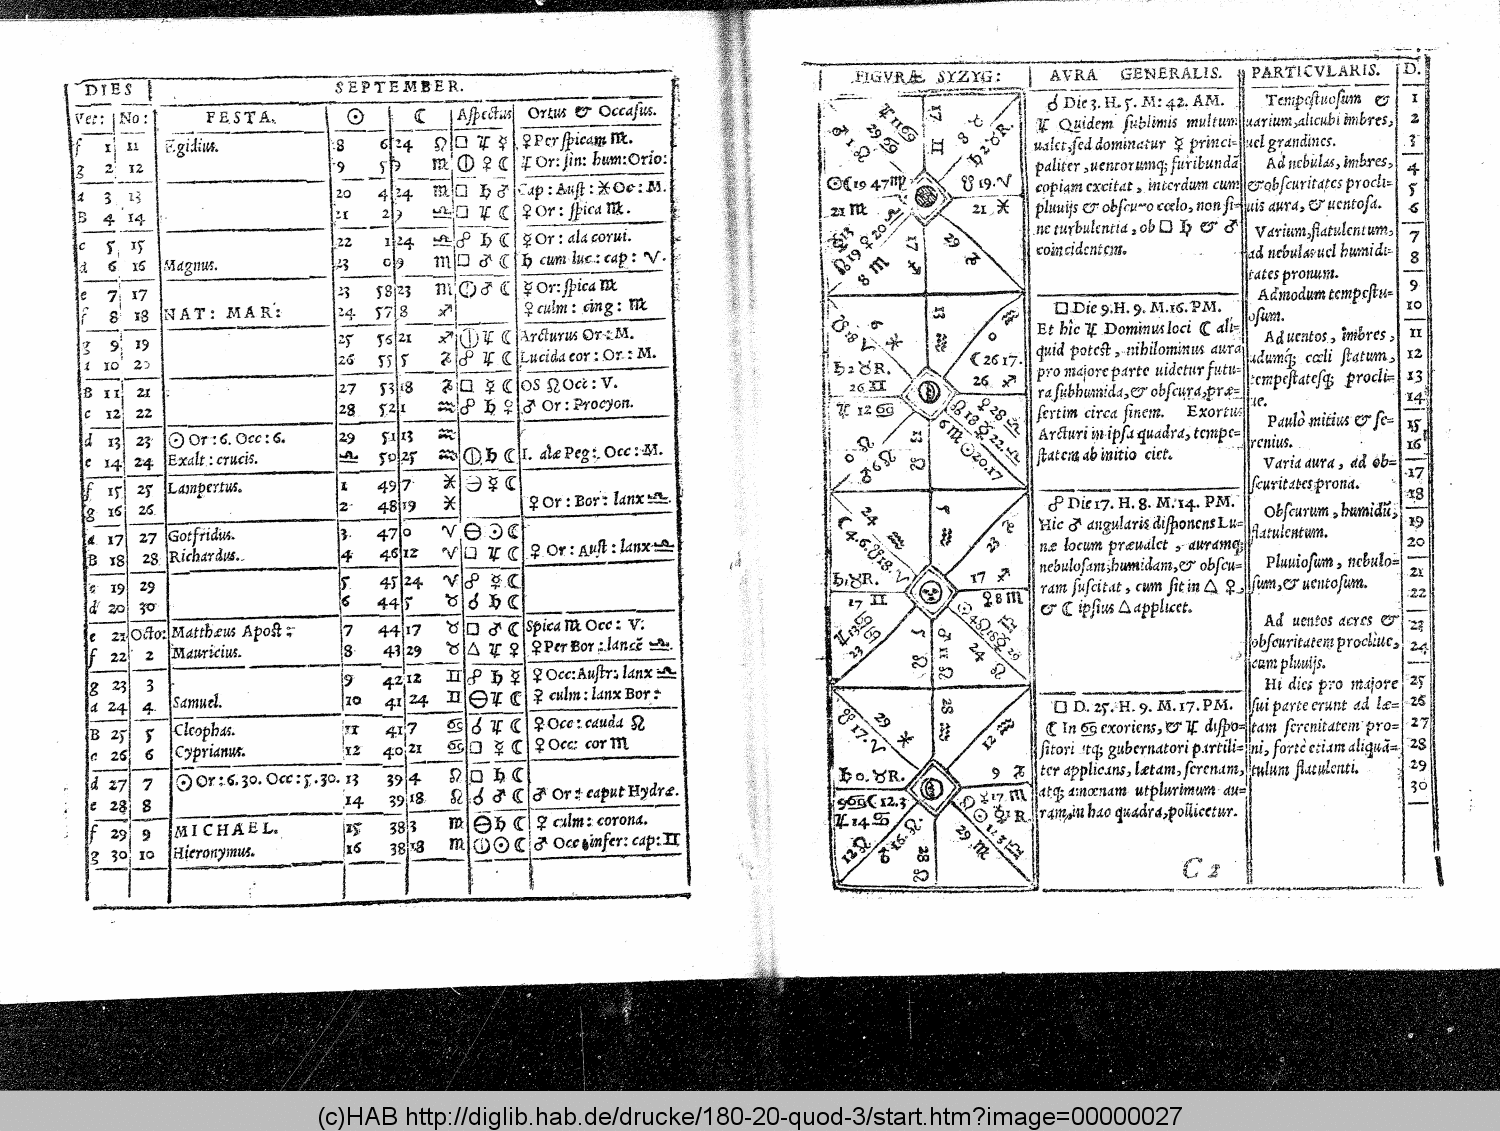 DIES SEPTEMBER.
Vet: No: FESTA. ☉ ☾ Aspectus Ortus & Occasus.
f 1 11 Egidius. 8 6 24 ♌ □ ♃ ☿ ♀ Per spicam ♍.
g 2 12 9 5 9 ♍ ♀ ☾ ♃ Or: sin: hum: Orio:
a 3 13 20 4 24 ♍ □ ♄ ♂ Cap: Aust: ♓ Oc: M.
B 4 14 21 2 9 ♎ □ ♃ ☾ ♀ Or: spica ♍.
c 5 15 22 1 24 ♎ ☍ ♄ ☾ ☿ Or: ala corui.
d 6 16 Magnus. 23 0 9 ♏ □ ♂ ☾ ♄ cum luc: cap: ♈.
e 7 17 23 58 23 ♏ ♂ ☾ ☿ Or: spica ♍
f 8 18 NAT: MAR: 24 57 8 ♐ ♀ culm: cing: ♍
g 9 19 25 56 21 ♐ ♃ ☾ Arcturus Or: M.
10 20 26 55 5 ♑ ☍ ♃ ☾ Lucida cor: Or: M.
B 11 21 27 53 18 ♑ □ ☿ ☾ OS ♌ Occ: V.
c 12 22 28 52 1 ♒ ☍ ♄ ♀ ♂ Or: Procyon.
d 13 23 ☉ Or: 6. Occ: 6. 29 51 13 ♒
e 14 24 Exalt: crucis. ♎ 50 25 ♒ ♄ ☾ I. alæ Peg: Occ: M.
f 15 25 Lampertus. 1 49 7 ♓ ☿ ☾
g 16 26 2 48 19 ♓ ♀ Or: Bor: lanx ♎.
a 17 27 Gotfridus. 3 47 0 ♈ ☉ ☾
B 18 28 Richardus. 4 46 12 ♈ □ ♃ ☾ ♀ Or: Aust: lanx ♎
c 19 29 5 45 24 ♈ ☍ ☿ ☾
d 20 30 6 44 5 ♉ ☌ ♄ ☾
e 21 Octo: Matthæus Apost: 7 44 17 ♉ □ ♂ ☾ Spica ♍ Occ: V:
f 22 2 Mauricius. 8 43 29 ♉ △ ♃ ♀ ♀ Per Bor: lancē ♎.
g 23 3 9 42 12 ♊ ☍ ♄ ☿ ♀ Occ: Austr: lanx ♎
a 24 4 Samuel. 10 41 24 ♊ ♃ ☾ ♀ culm: lanx Bor:
B 25 5 Cleophas. 11 41 7 ♋ ☌ ♃ ☾ ♀ Occ: cauda ♌
c 26 6 Cyprianus. 12 40 21 ♋ □ ☿ ☾ ♀ Occ: cor ♏
d 27 7 ☉ Or: 6. 30. Occ: 5. 30. 13 39 4 ♌ □ ♄ ☾
e 28 8 14 39 18 ♌ ☌ ♂ ☾ ♂ Or: caput Hydræ.
f 29 9 MICHAEL. 15 38 3 ♍ ♄ ☾ ♀ culm: corona.
g 30 10 Hieronymus. 16 38 18 ♍ ☉ ☾ ♂ Occ infer: cap: ♊
FIGVRÆ SYZYG:
17 ♊
8 ♉
♄ 2 ♉ R.
☋ 19. ♈
21 ♓
29 ♑
17 ♐
8 ♏
21 ♏
☉☾ 19 47 ♍
☾ 26 17.
26 ♐
♄ 2 ♉ R.
26 ♊
♃ 12 ♋
♀ 28 ♎
6 ♏
☉ 20. 17
0 ♌
♂ 6 ♌
24 ♒
23 ♑
17 ♐
♀ 8 ♏
♄ ♉ R.
17 ♊
24 ♌
☋ 17. ♈
29 ♓
28 ♒
12 ♒
9 ♑
♄ 0. ♉ R.
☾ 12. 3
♃ 14 ♋
12 ♌
♂ 16. ♌
28 ♌
29 ♏
AVRA GENERALIS.
☌ Die 3. H. 5. M: 42. AM.
♃ Quidem sublimis multum
ualet, sed dominatur ☿ princi-
paliter, uentorumq; furibundã
copiam excitat, interdum cum
pluuijs & obscuro cœlo, non si-
ne turbulentia, ob □ ♄ & ♂
coincidentem.
□ Die 9. H. 9. M. 16. PM.
Et hic ♃ Dominus loci ☾ ali-
quid potest, nihilominus aura
pro majore parte uidetur futu-
ra subhumida, & obscura, præ-
sertim circa finem. Exortus
Arcturi in ipsa quadra, tempe-
statem ab initio ciet.
☍ Die 17. H. 8. M. 14. PM.
Hic ♂ angularis disponens Lu-
næ locum præualet, auramq;
nebulosam, humidam, & obscu-
ram suscitat, cum sit in △ ♀,
& ☾ ipsius △ applicet.
□ D. 25. H. 9. M. 17. PM.
☾ In ♋ exoriens, & ♃ dispo-
sitori atq; gubernatori partili-
ter applicans, lætam, serenam,
atq; amœnam utplurimum au-
ram, in hac quadra, pollicetur.
PARTICVLARIS. D.
Tempestuosum &
uarium, alicubi imbres,
uel grandines.
Ad nebulas, imbres,
& obscuritates procli-
uis aura, & uentosa.
Varium, flatulentum,
ad nebulas uel humidi-
tates pronum.
Admodum tempestu-
osum.
Ad uentos, imbres,
udumq; cœli statum,
tempestatesq; procli-
ue.
Paulò mitius & se-
renius.
Varia aura, ad ob-
scuritates prona.
Obscurum, humidũ,
flatulentum.
Pluuiosum, nebulo-
sum, & uentosum.
Ad uentos acres &
obscuritatem procliue,
cum pluuijs.
Hi dies pro majore
sui parte erunt ad læ-
tam serenitatem pro-
ni, fortè etiam aliquã-
tulum flatulenti.
1
2
3
4
5
6
7
8
9
10
11
12
13
14
15
16
17
18
19
20
21
22
23
24
25
26
27
28
29
30
C 2
(c)HAB http://diglib.hab.de/drucke/180-20-quod-3/start.htm?image=00000027